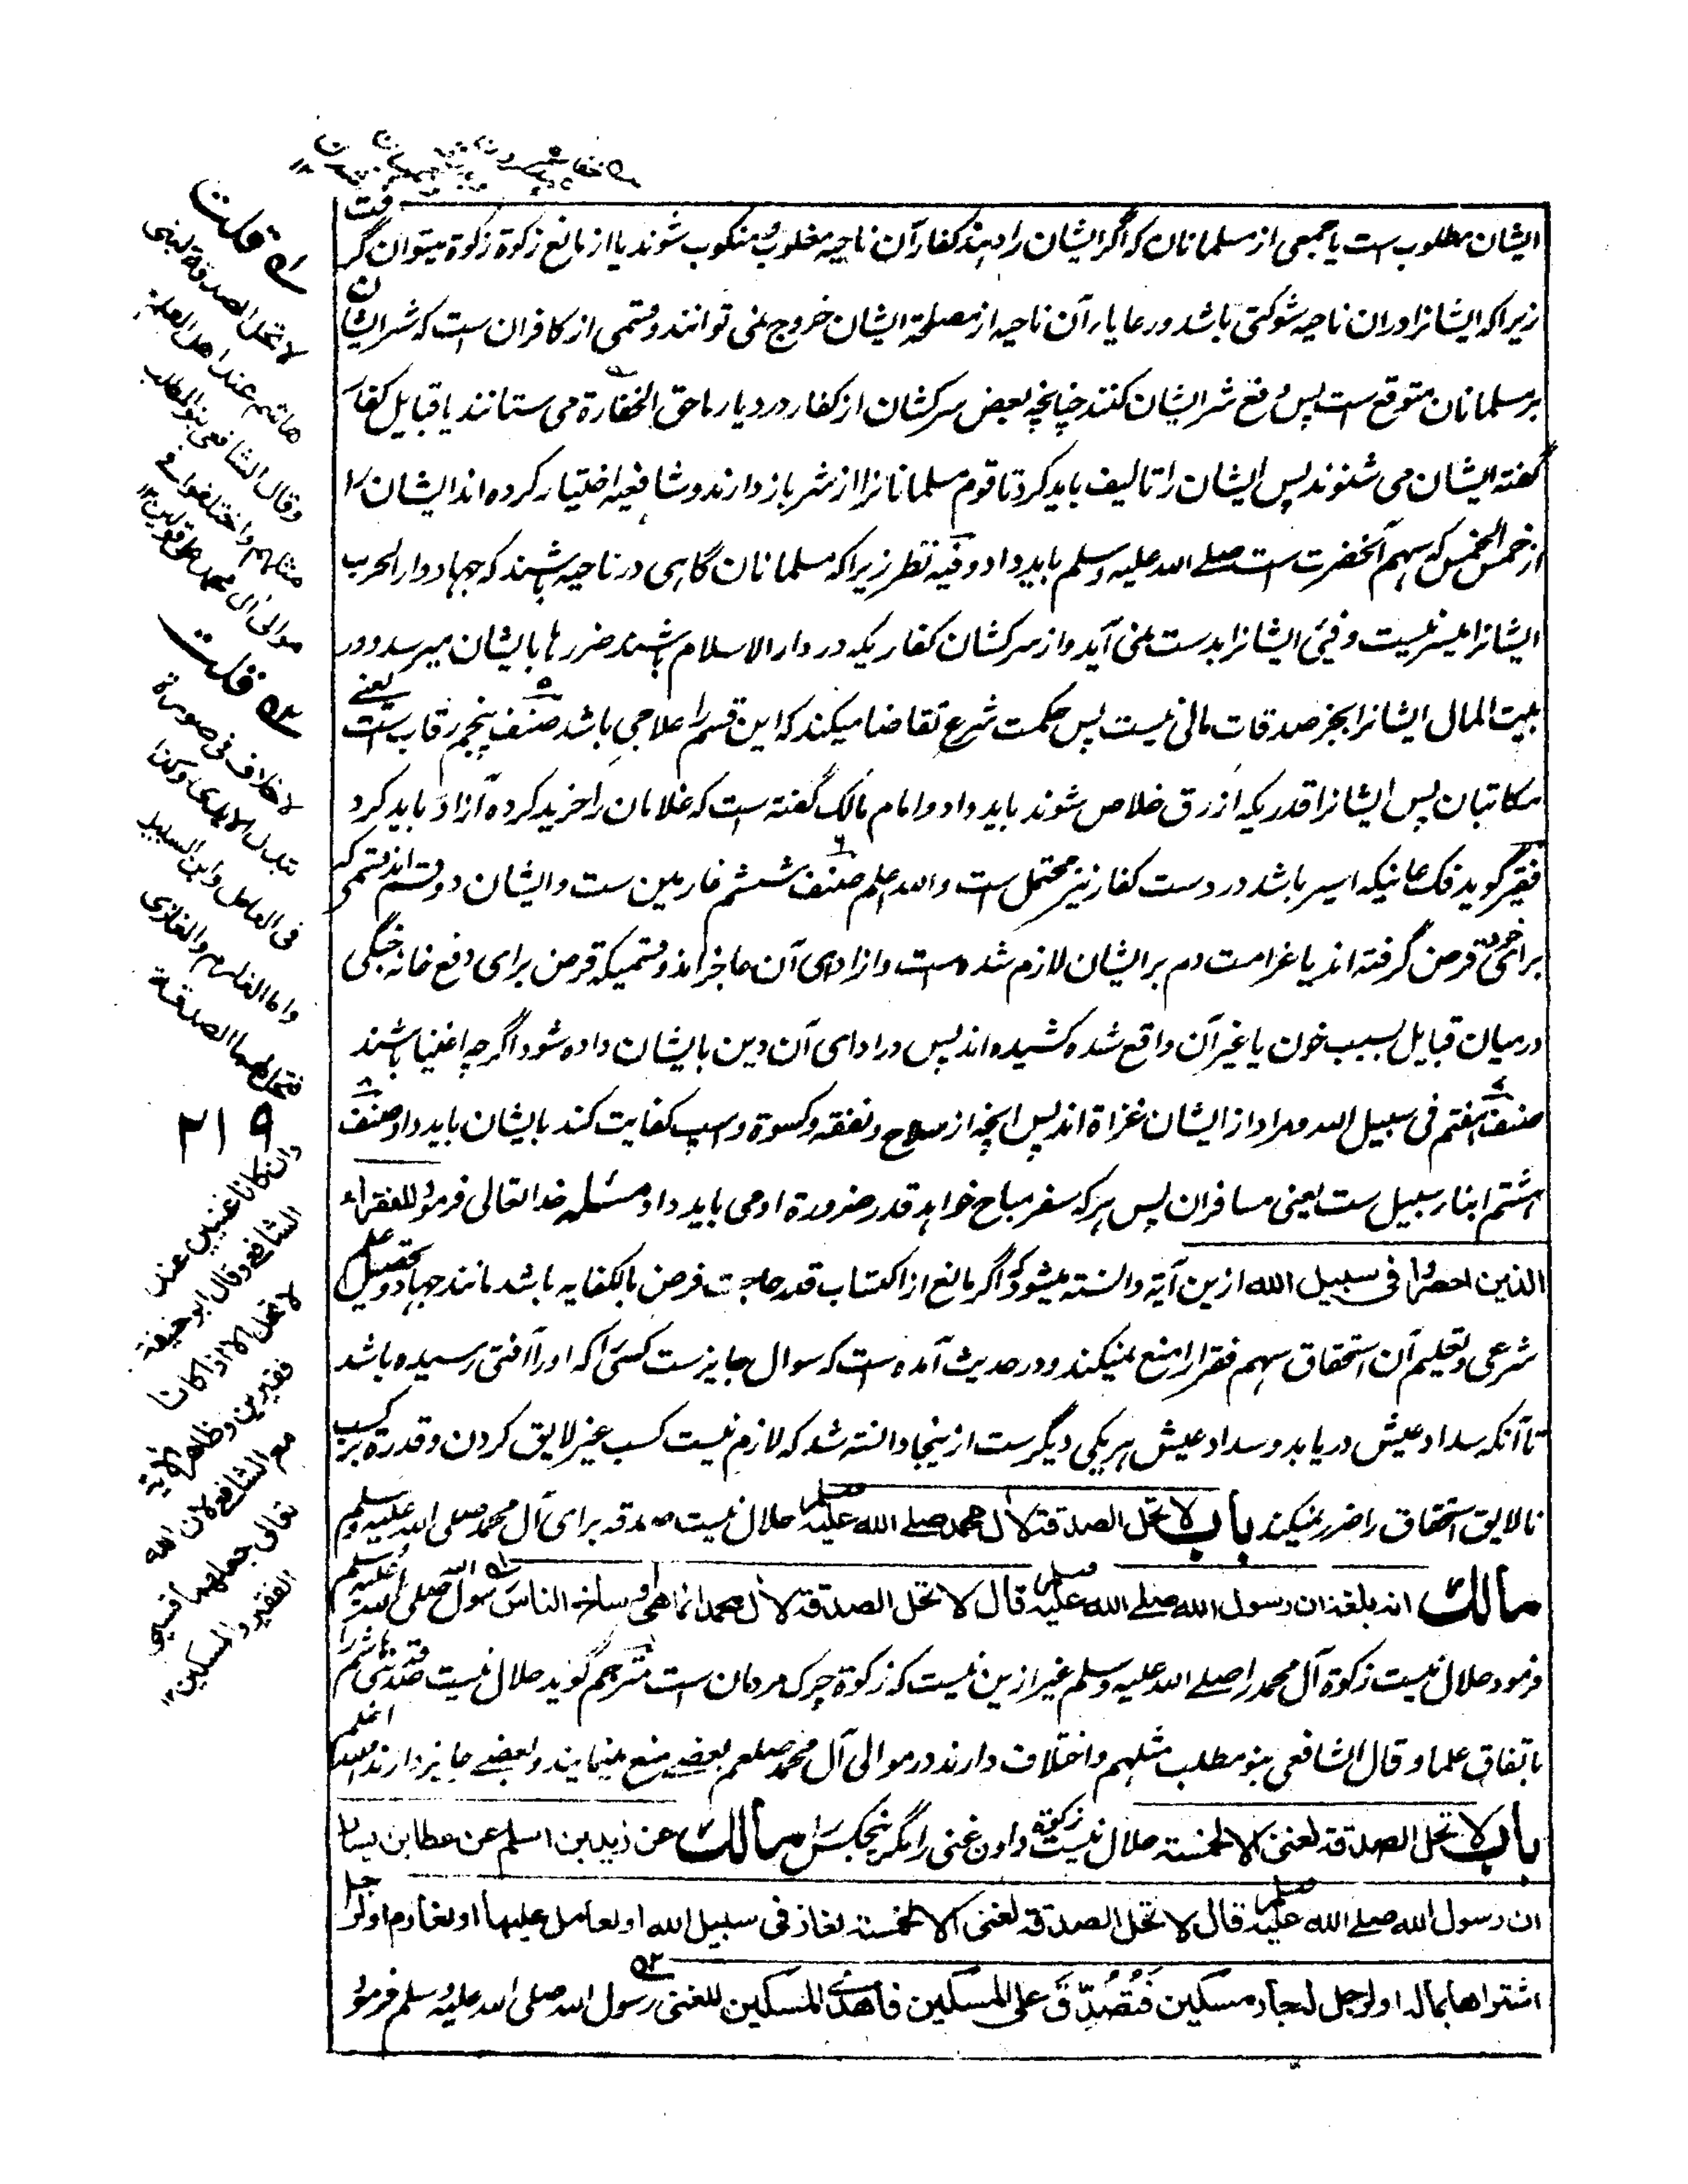 ایشان مطلوب است یا جمعی از مسلمانان که اگر ایشان را دهند کفار آن ناحیه مغلوب و منکوب شوند یا از مانع زکوة زکوة میتوان گرفت
زیراکه ایشانرا دران ناحیه شوکتی باشد و رعایاء آن ناحیه از مصلحة ایشان خروج نمی توانند و قسمی از کافران است که شر ایشان
بر مسلمانان متوقع است پس دفع شر ایشان کنند چنانچه بعض سرکشان از کفار در دیار ما حق الخفارة می ستانند یا قبایل کفار
گفته ایشان می شنوند پس ایشان را تالیف باید کرد تا قوم مسلمانانرا از شر باز دارند و شافعیه اختیار کرده اند ایشان را
از خمس الخمس که سهم آنحضرت است صلے الله علیه وسلم باید داد وفیه نظر زیراکه مسلمانان گاهی در ناحیه باشند که جهاد دار الحرب
ایشانرا میسر نیست و فیئ ایشانرا بدست نمی آید و از سرکشان کفار یکه در دار الاسلام باشند ضررها بایشان میرسد و در
بیت المال ایشانرا بجز صدقات مالی نیست پس حکمت شرع تقاضا میکند که این قسم را علاجی باشد صنف پنجم رقاب ست یعنے
مکاتبان پس ایشانرا قدریکه از رق خلاص شوند باید داد و امام مالک گفته است که غلامان را خرید کرده آزاد باید کرد
فقیر گوید فک عانیکه اسیر باشد در دست کفار نیز محتمل است والله اعلم صنف ششم غارمین ست و ایشان دو قسم اند قسمی که
برای خود قرض گرفته اند یا غرامت دم بر ایشان لازم شده است و از ادای آن عاجز اند و قسمیکه قرض برای دفع خانه جنگی
درمیان قبایل بسبب خون یا غیر آن واقع شده کشیده اند پس در ادای آن دین بایشان داده شود اگرچه اغنیا باشند
صنف هفتم فی سبیل الله و مراد از ایشان غزاة اند پس آنچه از سلاح و نفقه و کسوة و اسپ کفایت کند بایشان باید داد صنف
هشتم ابناء سبیل ست یعنی مسافران پس هر که سفر مباح خواهد قدر ضرورة او می باید داد مسئله خدا تعالی فرمود للفقراء
الذین احصروا فی سبیل الله ازین آیة دانسته میشود که اگر مانع از اکتساب قدر حاجت فرض بالکفایه باشد مانند جهاد و تحصیل علم
شرعی و تعلیم آن استحقاق سهم فقرا را منع نمیکند و در حدیث آمده است که سوال جایز ست کسی را که او را آفتی رسیده باشد
تا آنکه سداد عیش دریابد و سداد عیش هر یکی دیگر ست ازینجا دانسته شد که لازم نیست کسب غیر لایق کردن و قدرة بر کسب
نالایق استحقاق را ضرر نمیکند باب لا تحل الصدقة لآل محمد صلے الله علیه وسلم حلال نیست صدقه برای آل محمد صلی الله علیه وسلم
مالک انه بلغه ان رسول الله صلے الله علیه وسلم قال لا تحل الصدقة لآل محمد انما هی اوساخ الناس رسول الله صلی الله علیه وسلم
فرمود حلال نیست زکوة آل محمد را صلے الله علیه وسلم غیر ازین نیست که زکوة چرک مردمان است مترجم گوید حلال نیست صدقه بنی هاشم را
باتفاق علما و قال الشافعی بنو مطلب مثلهم و اختلاف دارند در موالی آل محمد صلعم بعضے منع مینمایند و بعضے جایز دارند والله اعلم
باب لا تحل الصدقة لغنی الا لخمسة حلال نیست زکوة دادن غنی را مگر پنجکس را مالک عن زید بن اسلم عن عطا بن یسار
ان رسول الله صلے الله علیه وسلم قال لا تحل الصدقة لغنی الا لخمسة لغاز فی سبیل الله او لعامل علیها او لغارم او لرجل
اشتراها بماله او لرجل له جار مسکین فتُصُدِّقَ علی المسکین فاهدی المسکین للغنی رسول الله صلی الله علیه وسلم فرمود
قلت
لا تحل الصدقة لبنی
هاشم عند اهل العلم
وقال الشافعی بنو المطلب
مثلهم واختلفوا فی
موالی آل محمد علی قولین ۱۲
قلت
لا خلاف فی صورة
تبدل الایدی وکذا
فی العامل وابن السبیل
واما الغارم والغازی
فتحل لهما الصدقة
۲۱۹
وان کانا غنیین عند
الشافعے وقال ابو حنیفة
لا تحل الا اذا کانا
فقیرین وظاهر الآیة
مع الشافعے لان الله
تعالی جعلهما قسیمی
الفقیر والمسکین ۱۲